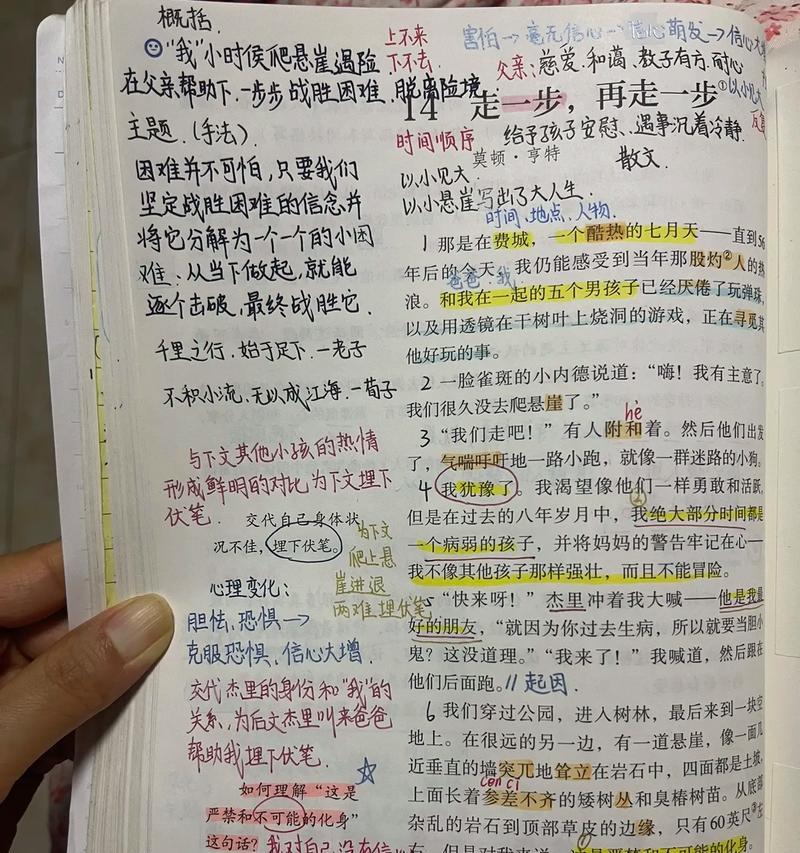 概括.
“我”小时候爬悬崖遇险
在父亲帮助下.一步步战胜困难.脱离险境.
上不来
下不去
害怕→毫无信心→信心萌发→信心大增
父亲:慈爱.和蔼.教子有方.耐心
14 走一步，再走一步①
以小见大
给予孩子安慰、遇事沉着冷静.
时间顺序
莫顿·亨特
散文.
以小见大.
以小悬崖写出了大人生.
时间、地点、人物.
主题.(手法).
困难并不可怕,只要我们
坚定战胜困难的信念,并
将它分解为一个一个的小困
难;从当下做起,就能
逐个击破,最终战胜它.
千里之行.始于足下.一老子
不积小流,无以成江海.一荀子
与下文其他小孩的热情
形成鲜明的对比为下文埋下
伏笔.
交代自己身体状
况不佳，埋下伏笔。
为下文
爬上悬
崖进退
两难埋伏笔
心理变化:
胆怯.恐惧→
克服恐惧、信心大增.
交代杰里的身份和“我”的
关系,为后文杰里叫来爸爸
帮助我埋下伏笔.
如何理解“这是
严禁和不可能的化身”
这句话?
我对自己没有信
1 那是在费城，一个酷热的七月天——直到56
年后的今天，我仍能感受到当年那股灼②人的热
爸爸:我
浪。和我在一起的五个男孩子已经厌倦了玩弹珠，
以及用透镜在干树叶上烧洞的游戏，正在寻觅其
他好玩的事。
2 一脸雀斑的小内德说道：“嗨！我有主意了。
我们很久没去爬悬崖了。”
hè
3 “我们走吧！”有人附和着。然后他们出发
了，气喘吁吁地一路小跑，就像一群迷路的小狗。
4 我犹豫了。我渴望像他们一样勇敢和活跃，
但是在过去的八年岁月中，我绝大部分时间都是
一个病弱的孩子，并将妈妈的警告牢记在心——
我不像其他孩子那样强壮，而且不能冒险。
5 “快来呀！”杰里冲着我大喊——他是我最
好的朋友，“就因为你过去生病，所以就要当胆小
鬼？这没道理。”“我来了！”我喊道，然后跟在
他们后面跑。// 起因.
6 我们穿过公园，进入树林，最后来到一块空
地上。在很远的另一边，有一道悬崖，像一面几
近垂直的墙突兀地耸立在岩石中，四面都是土坡，
cēn cī
上面长着参差不齐的矮树丛和臭椿树苗。从底部
杂乱的岩石到顶部草皮的边缘，只有60英尺③左
右，但是对我来说，这是严禁和不可能的化身。